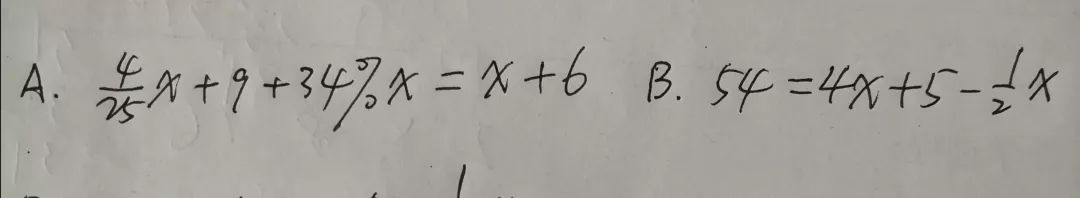 A. 4/25 x + 9 + 34% x = x + 6 B. 54 = 4x + 5 - 1/2 x